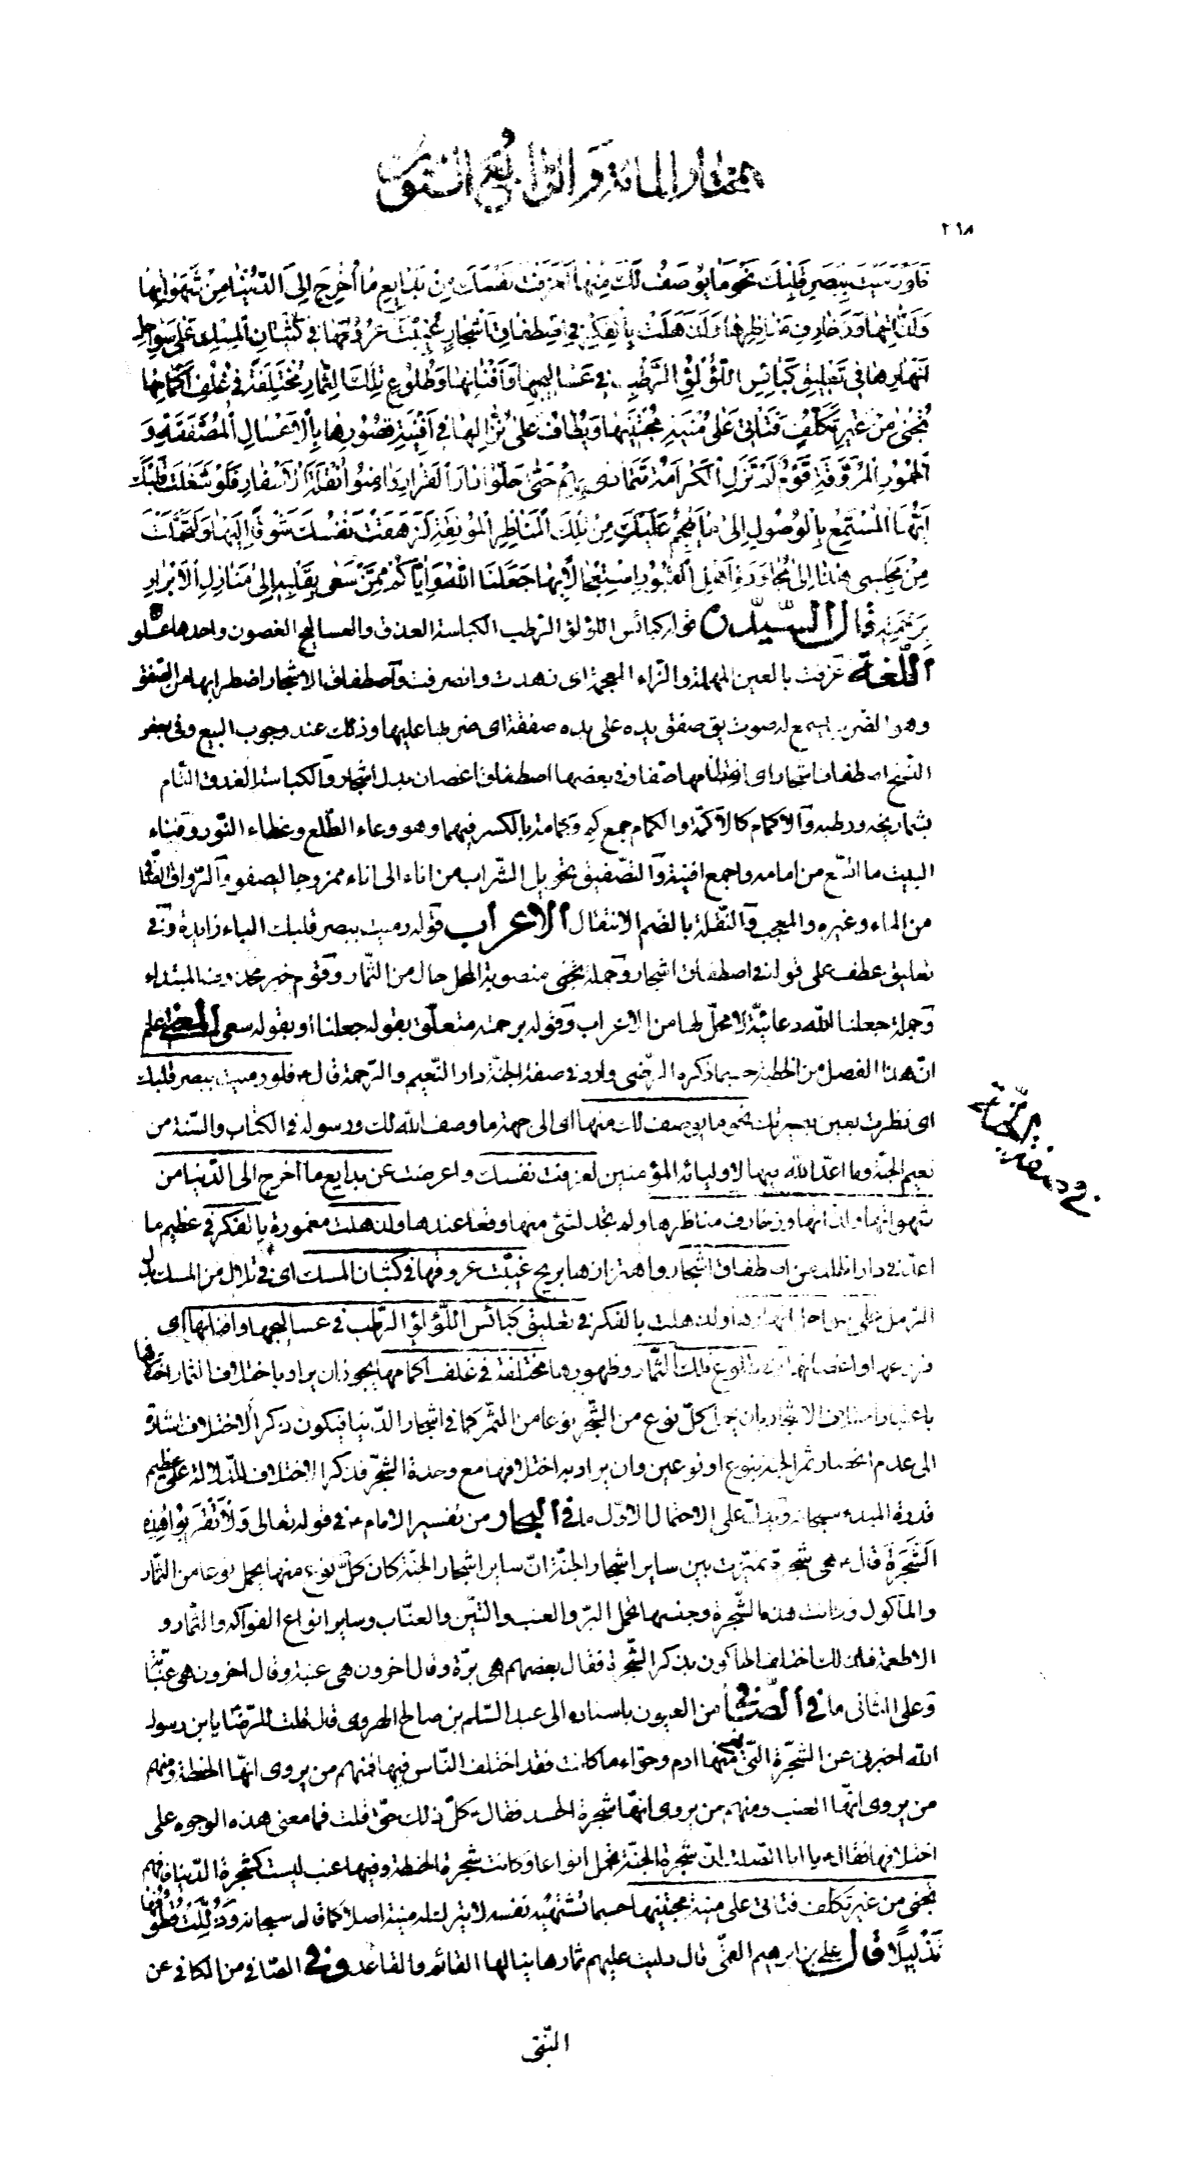 المختار المائة والرابع الستون
٢٩٨
فلو رميت ببصر قلبك نحو ما يوصف لك منها لعزفت نفسك من بدايع ما أخرج إلى الدنيا من شهواتها
ولذاتها وزخارف مناظرها ولذهلت بالفكر في اصطفاق أشجار غيبت عروقها في كثبان المسك على سواحل
أنهارها وفي تعليق كبائس اللؤلؤ الرطب في عساليجها وأفنانها وطلوع تلك الثمار مختلفة في غلف أكمامها
تجنى من غير تكلف فتأتي على منية مجتنيها ويطاف على نزالها في أفنية قصورها بالأعسال المصفقة و
الخمور المروقة قوم لم تزل الكرامة تتمادى بهم حتى حلوا دار القرار وأمنوا نقلة الأسفار فلو شغلت قلبك
أيها المستمع بالوصول إلى ما يهجم عليك من تلك المناظر المونقة لزهقت نفسك شوقا إليها ولتحملت
من مجلسي هذا إلى مجاورة أهل القبور استعجالا بها جعلنا الله وإياكم ممن سعى بقلبه إلى منازل الأبرار
برحمته قال السيد ره قوله كبائس اللؤلؤ الرطب الكباسة العذق والعساليج الغصون واحدها عسلوج
اللغة عزفت بالعين المهملة والزاء المعجمة اى زهدت وانصرفت واصطفاق الاشجار اضطرابها من الصفق
وهو الضرب يسمع له صوت يق صفق يده على يده صفقة اى ضربها عليها وذلك عند وجوب البيع وفى بعض
النسخ اصطفاف اشجار اى انتظامها صفا وفى بعضها اصطفاق اغصان بدل اشجار والكباسة العذق التام
بشماريخه ورطبه والاكمام كالاكمة والكمام جمع كم وكمامة بالكسر فيهما وهو وعاء الطلع وغطاء النور وفناء
البيت ما اتسع من امامه واجمع افنية والتصفيق تحويل الشراب من اناء الى اناء ممزوجا ليصفو والرواق الصافى
من الماء وغيره والمعجب والنقلة بالضم الانتقال الاعراب قوله رميت ببصر قلبك الباء زايدة وفى
تعليق عطف على قوله فى اصطفاق اشجار وجملة تجنى منصوبة المحل حال من الثمار وقوم خبر محذوف المبتداء
وجملة جعلنا الله دعائية لا محل لها من الاعراب وقوله برحمته متعلق بقوله جعلنا او بقوله سعى المعنى اعلم
ان هذا الفصل من الخطبة حسبما ذكره الرضى وارد فى صفة الجنة دار النعيم والرحمة قال ع فلو رميت ببصر قلبك
اى نظرت بعين بصيرتك نحو ما يوصف لك منها اى الى جهة ما وصف الله لك ورسوله فى الكتاب والسنة من
نعيم الجنة وما اعد الله فيها لاوليائه المؤمنين لعزفت نفسك واعرضت عن بدايع ما اخرج الى الدنيا من
شهواتها ولذاتها وزخارف مناظرها ولم تجد لشئ منها وقعا عندها ولذهلت مغمورة بالفكر فى عظيم ما
اعد فى دار الخلد من اصطفاق اشجار واهتزازها بريح غيبت عروقها فى كثبان المسك اى فى تلال من المسك بدل
الرمل على سواحل انهارها ولذهلت بالفكر فى تعليق كبائس اللؤلؤ الرطب فى عساليجها وافنانها اى
فى غصونها واغصانها وطلوع تلك الثمار وظهورها مختلفة فى غلف اكمامها يجوز ان يراد باختلاف الثمار اختلافها
باعتبار اختلاف الاشجار بان يحمل كل نوع من الشجر نوعا من الثمر كما فى اشجار الدنيا فيكون ذكر الاختلاف اشارة
الى عدم انحصار ثمر الجنة بنوع او نوعين وان يراد به اختلافها مع وحدة الشجر فذكر الاختلاف للدلالة على عظيم
قدرة المبدء سبحانه ويدل على الاحتمال الاول ما فى البحار من تفسير الامام ع فى قوله تعالى ولا تقربوا هذه
الشجرة قال ع هى شجرة تميزت بين ساير اشجار الجنة ان ساير اشجار الجنة كان كل نوع منها يحمل نوعا من الثمار
والمأكول وكانت هذه الشجرة وجنسها تحمل البر والعنب والتين والعناب وساير انواع الفواكه والثمار و
الاطعمة فلذلك اختلف الحاكون بذكر الشجرة فقال بعضهم هى برة وقال اخرون هى عنبة وقال اخرون هى عنابة
وعلى الثانى ما فى الصافى من العيون باسناده الى عبد السلم بن صالح الهروى قال قلت للرضا يا بن رسول
الله اخبرنى عن الشجرة التى اكل منها ادم وحواء ما كانت فقد اختلف الناس فيها فمنهم من يروى انها الحنطة ومنهم
من يروى انها العنب ومنهم من يروى انها شجرة الحسد فقال كل ذلك حق قلت فما معنى هذه الوجوه على
اختلافها فقال ع يا ابا الصلت ان شجرة الجنة تحمل انواعا وكانت شجرة الحنطة وفيها عنب ليست كشجرة الدنيا فهى
تجنى من غير تكلف فتأتى على منية مجتنيها حسبما تشتهيه نفسه لا يترك له منية اصلا كما قال سبحانه وذللت قطوفها
تذليلا قال على بن ابرهيم القمى قال دليت عليهم ثمارها ينالها القائم والقاعد وفى الصافى من الكافى عن
النبى